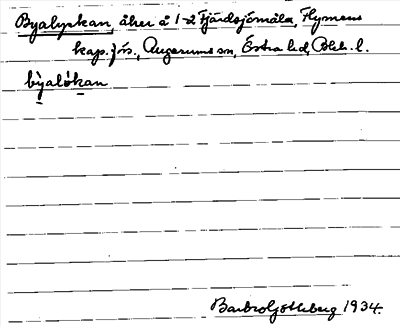 Byalyckan, åker å 1-2 Fjärdsjömåla, Flymens
kap.förs., Augerums sn, Östra hd, Blek. l.
byalökan
Barbro Götheberg 1934.